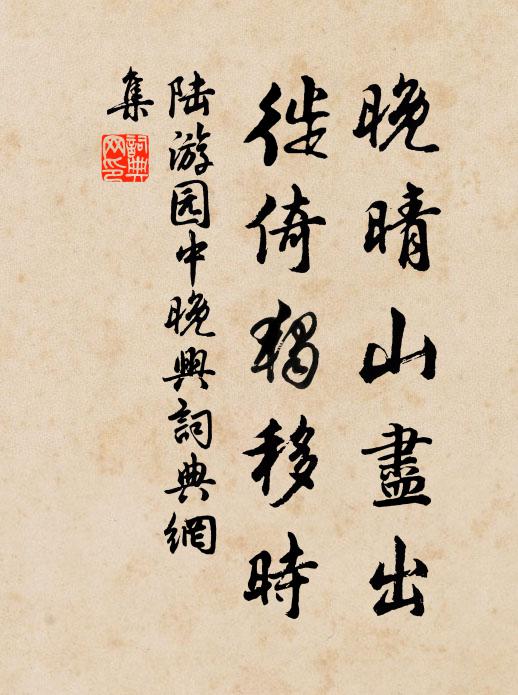 晚晴山盡出
徙倚獨移時
陆游园中晚興詞典網
集
詞典
网印